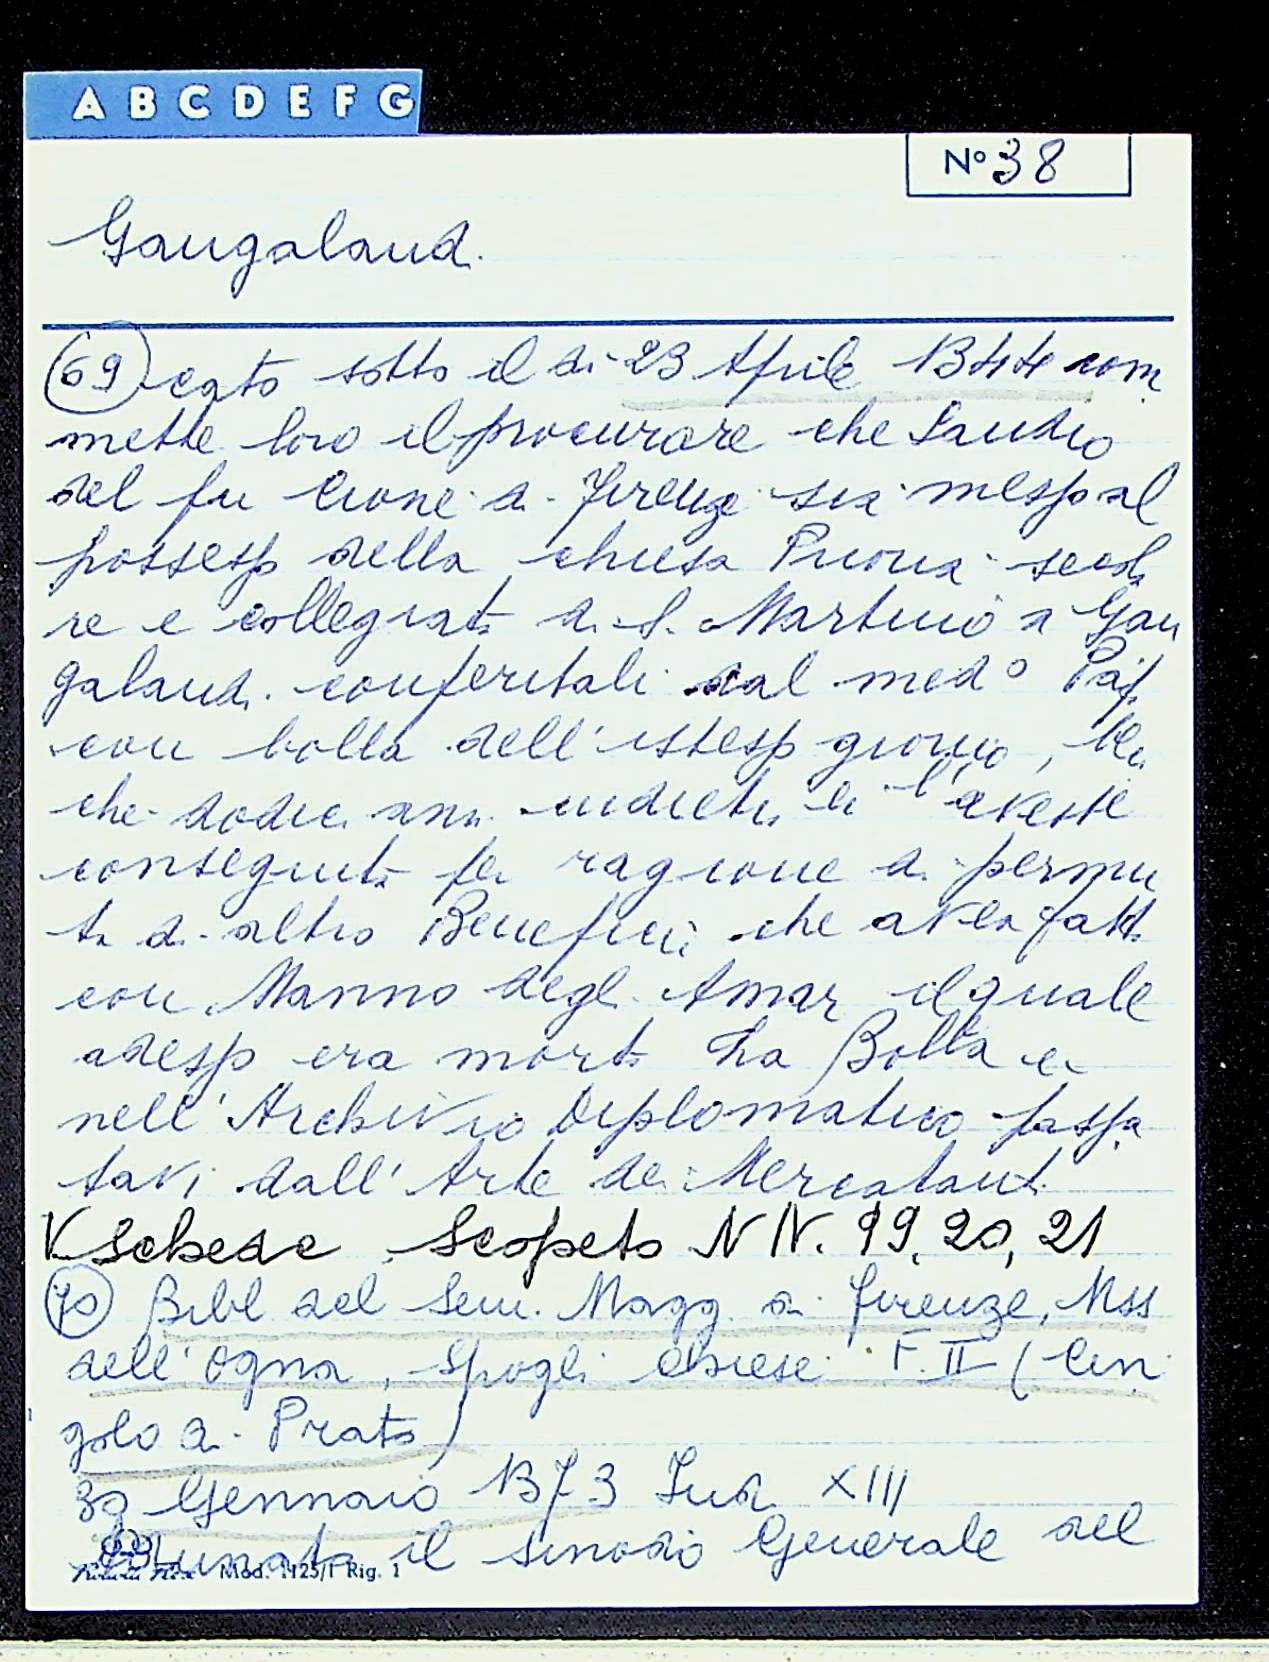 A B C D E F G
N° 38
Gangalandi
(69) cato sotto il di 23 Aprile 1344 com
mette loro il procurare che Landio
del fu Cione di Firenze sia messo al
possesso della chiesa Prioria secol
re e collegiata di S. Martino a Gan
galandi conferitali dal med° Papa
con bolla dell'istesso giorno,
che dodici anni indietro ei l'avesse
conseguita per ragione di permu
ta di altro Beneficio che avea fatta
con Manno degli Amari il quale
adesso era morto La Bolla è
nell'Archivio Diplomatico passa
tavi dall'Arte dei Mercatanti
V Schede Scopeto N N. 19, 20, 21
(70) Bibl del Sem. Magg. di Firenze, Mss
dell'Ogna, Spogli Chiese F. II (Cin
golo di Prato)
30 Gennaio 1373 Ind XIII
Adunato il sinodo Generale del
Mod. 1125/F Rig. 1